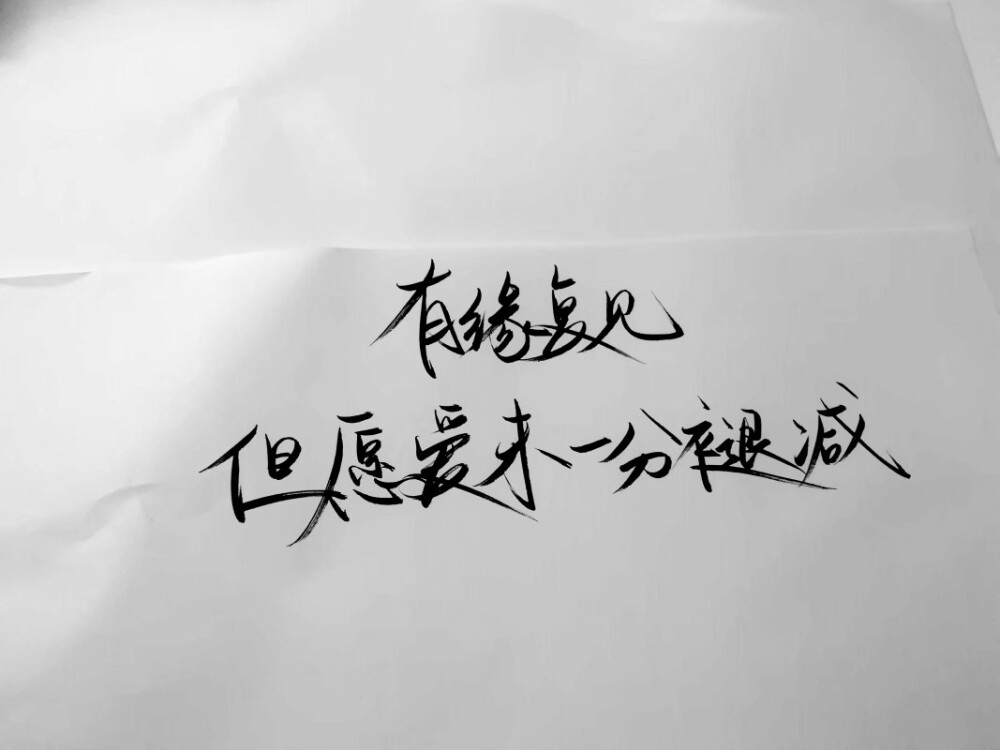 有缘复见
但愿爱未一分褪减